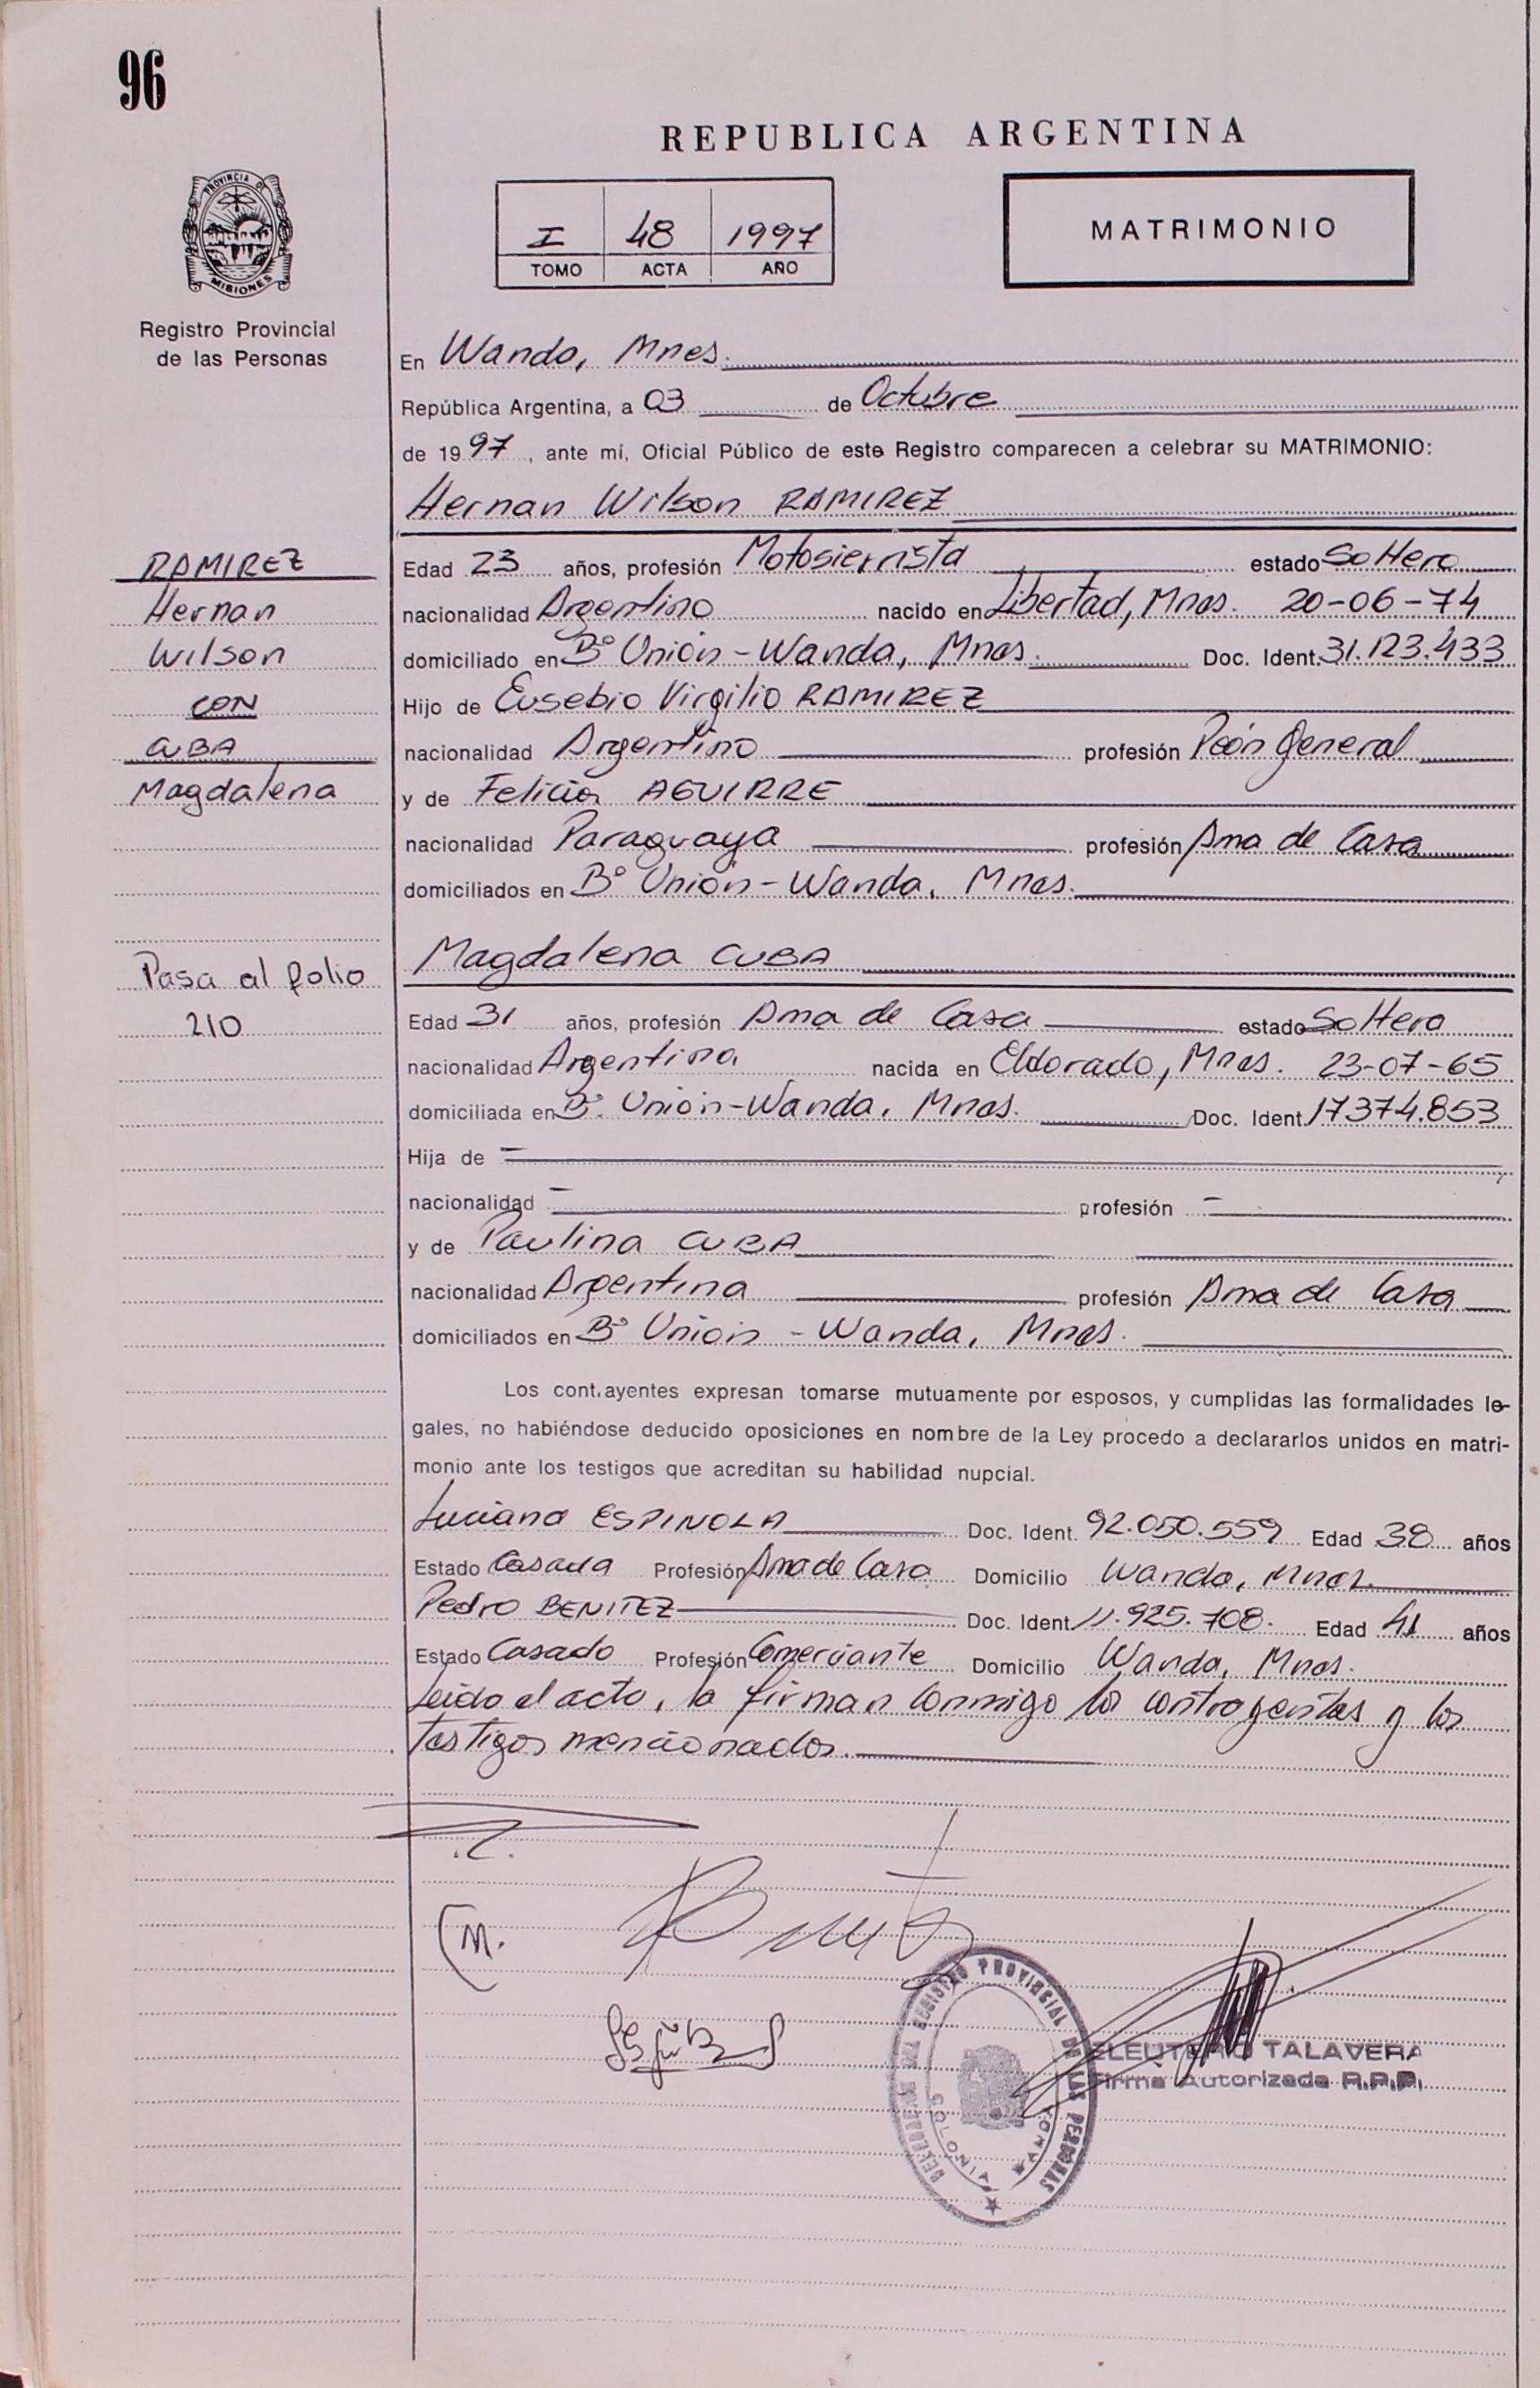 96
REPUBLICA ARGENTINA
PROVINCIA DE
MISIONES
Registro Provincial
de las Personas
I 48 1997
TOMO ACTA AÑO
MATRIMONIO
En Wanda, Mnes.
República Argentina, a 03 de Octubre
de 1997, ante mí, Oficial Público de este Registro comparecen a celebrar su MATRIMONIO:
Hernan Wilson RAMIREZ
RAMIREZ
Hernan
Wilson
CON
CUBA
Magdalena
Pasa al folio
210
Edad 23 años, profesión Motosierrista estado Soltero
nacionalidad Argentino nacido en Libertad, Mnes. 20-06-74
domiciliado en Bº Unión-Wanda, Mnes. Doc. Ident. 31.123.433
Hijo de Eusebio Virgilio RAMIREZ
nacionalidad Argentino profesión Peón General
y de Felicia AGUIRRE
nacionalidad Paraguaya profesión Ama de Casa
domiciliados en Bº Unión-Wanda, Mnes.
Magdalena CUBA
Edad 31 años, profesión Ama de Casa estado Soltera
nacionalidad Argentina nacida en Eldorado, Mnes. 23-07-65
domiciliada en Bº Unión-Wanda, Mnes. Doc. Ident. 17374.853
Hija de -
nacionalidad - profesión -
y de Paulina CUBA
nacionalidad Argentina profesión Ama de Casa
domiciliados en Bº Unión - Wanda, Mnes.
Los contrayentes expresan tomarse mutuamente por esposos, y cumplidas las formalidades le-
gales, no habiéndose deducido oposiciones en nombre de la Ley procedo a declararlos unidos en matri-
monio ante los testigos que acreditan su habilidad nupcial.
Luciana ESPINOLA Doc. Ident. 92.050.559 Edad 38 años
Estado Casada Profesión Ama de Casa Domicilio Wanda, Mnes.
Pedro BENITEZ Doc. Ident. 11.925.708. Edad 41 años
Estado Casado Profesión Comerciante Domicilio Wanda, Mnes.
Leída el acta, la firman conmigo los contrayentes y los
testigos mencionados.
REGISTRO PROVINCIAL DE LAS PERSONAS
COLONIA WANDA
ELEUTERIO TALAVERA
Firma Autorizada R.P.P.